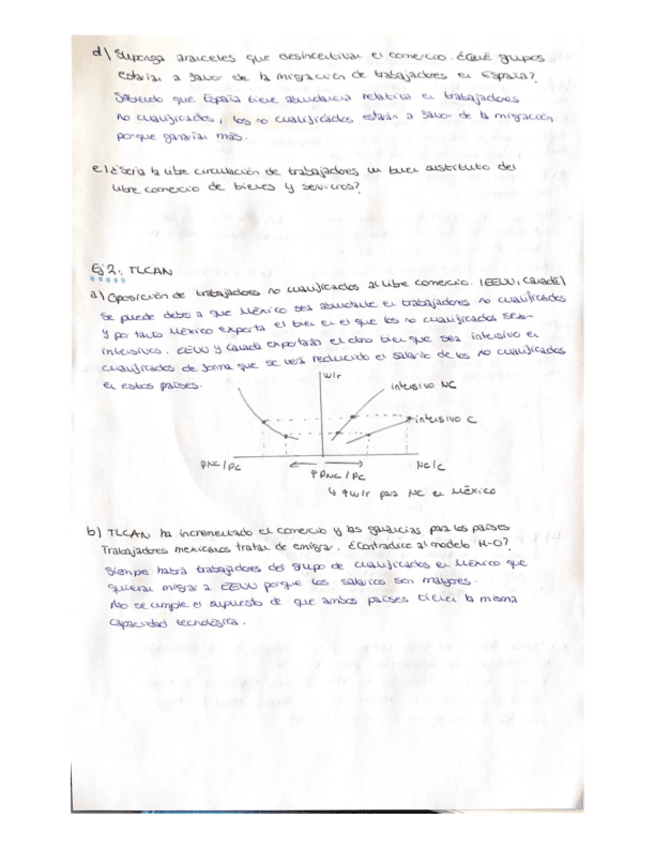 d) Suponga aranceles que desincentivan el comercio. ¿Qué grupos
estarían a favor de la migración de trabajadores en España?
Sabiendo que España tiene abundancia relativa en trabajadores
no cualificados, los no cualificados estarán a favor de la migración
porque ganarían más.
e) ¿Sería la libre circulación de trabajadores un buen sustituto del
libre comercio de bienes y servicios?
Ej 2: TLCAN
a) Oposición de trabajadores no cualificados al libre comercio. (EEUU, Canadá)
Se puede deber a que México sea abundante en trabajadores no cualificados
y por tanto México exporta el bien en el que los no cualificados sean
intensivos. EEUU y Canadá exportarán el otro bien que sea intensivo en
cualificados de forma que se verá reducido el salario de los no cualificados
en estos países.
w/r
intensivo NC
intensivo C
PNC/PC
NC/C
↑ PNC/PC
↳ ↑w/r para NC en México
b) TLCAN ha incrementado el comercio y las ganancias para los países
Trabajadores mexicanos tratan de emigrar. ¿Contradice al modelo H-O?
Siempre habrá trabajadores del grupo de cualificados en México que
quieran migrar a EEUU porque los salarios son mayores.
No se cumple el supuesto de que ambos países tienen la misma
capacidad tecnológica.